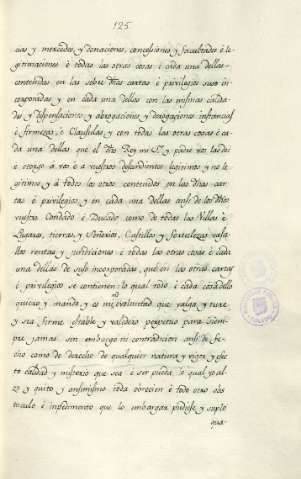 125
cias y mercedes, y donaciones, concesiones, y facultades è le
gitimaciones è todas las otras cosas è cada una dellas
contenidas en las sobre dhas cartas è privilegios suso in
corporadas y en cada una dellas con las mismas calida
des y dispensaciones y abrogaciones y derogaciones
è firmezas è Clausulas y con todas las otras cosas è ca
da una dellas que el dho Rey mi Sr. y padre vos las dió
è otorgó à vos è a vuestros descendientes legitimos y no le
gitimos y à todos los otros contenidos en las dhas car
tas è privilegios y en cada una dellas ansi de los dhos
vuestro Condado è Ducado como de todas las Villas è
Lugares, tierras, y Señorios, Castillos y fortalezas vasa
llos rentas y jurisdiciones è todas las otras cosas è cada
una dellas de suso incorporadas, que en las otras cartas
è privilegios se contienen lo qual todo è cada cosa dello
quiero y mando y es mi voluntad que valga y ture
y sea firme estable y valedero perpetuo para siem
pre jamas sin embargo ni contradicion ansi de fe
cho como de derecho de qualquier natura y vigor y efec
to calidad y misterio que sea è ser pueda lo qual yo al
zo y quito y ansimismo toda obrecion è todo otro obs
taculo è impedimento que lo embargar pudiese y suplo
qua-